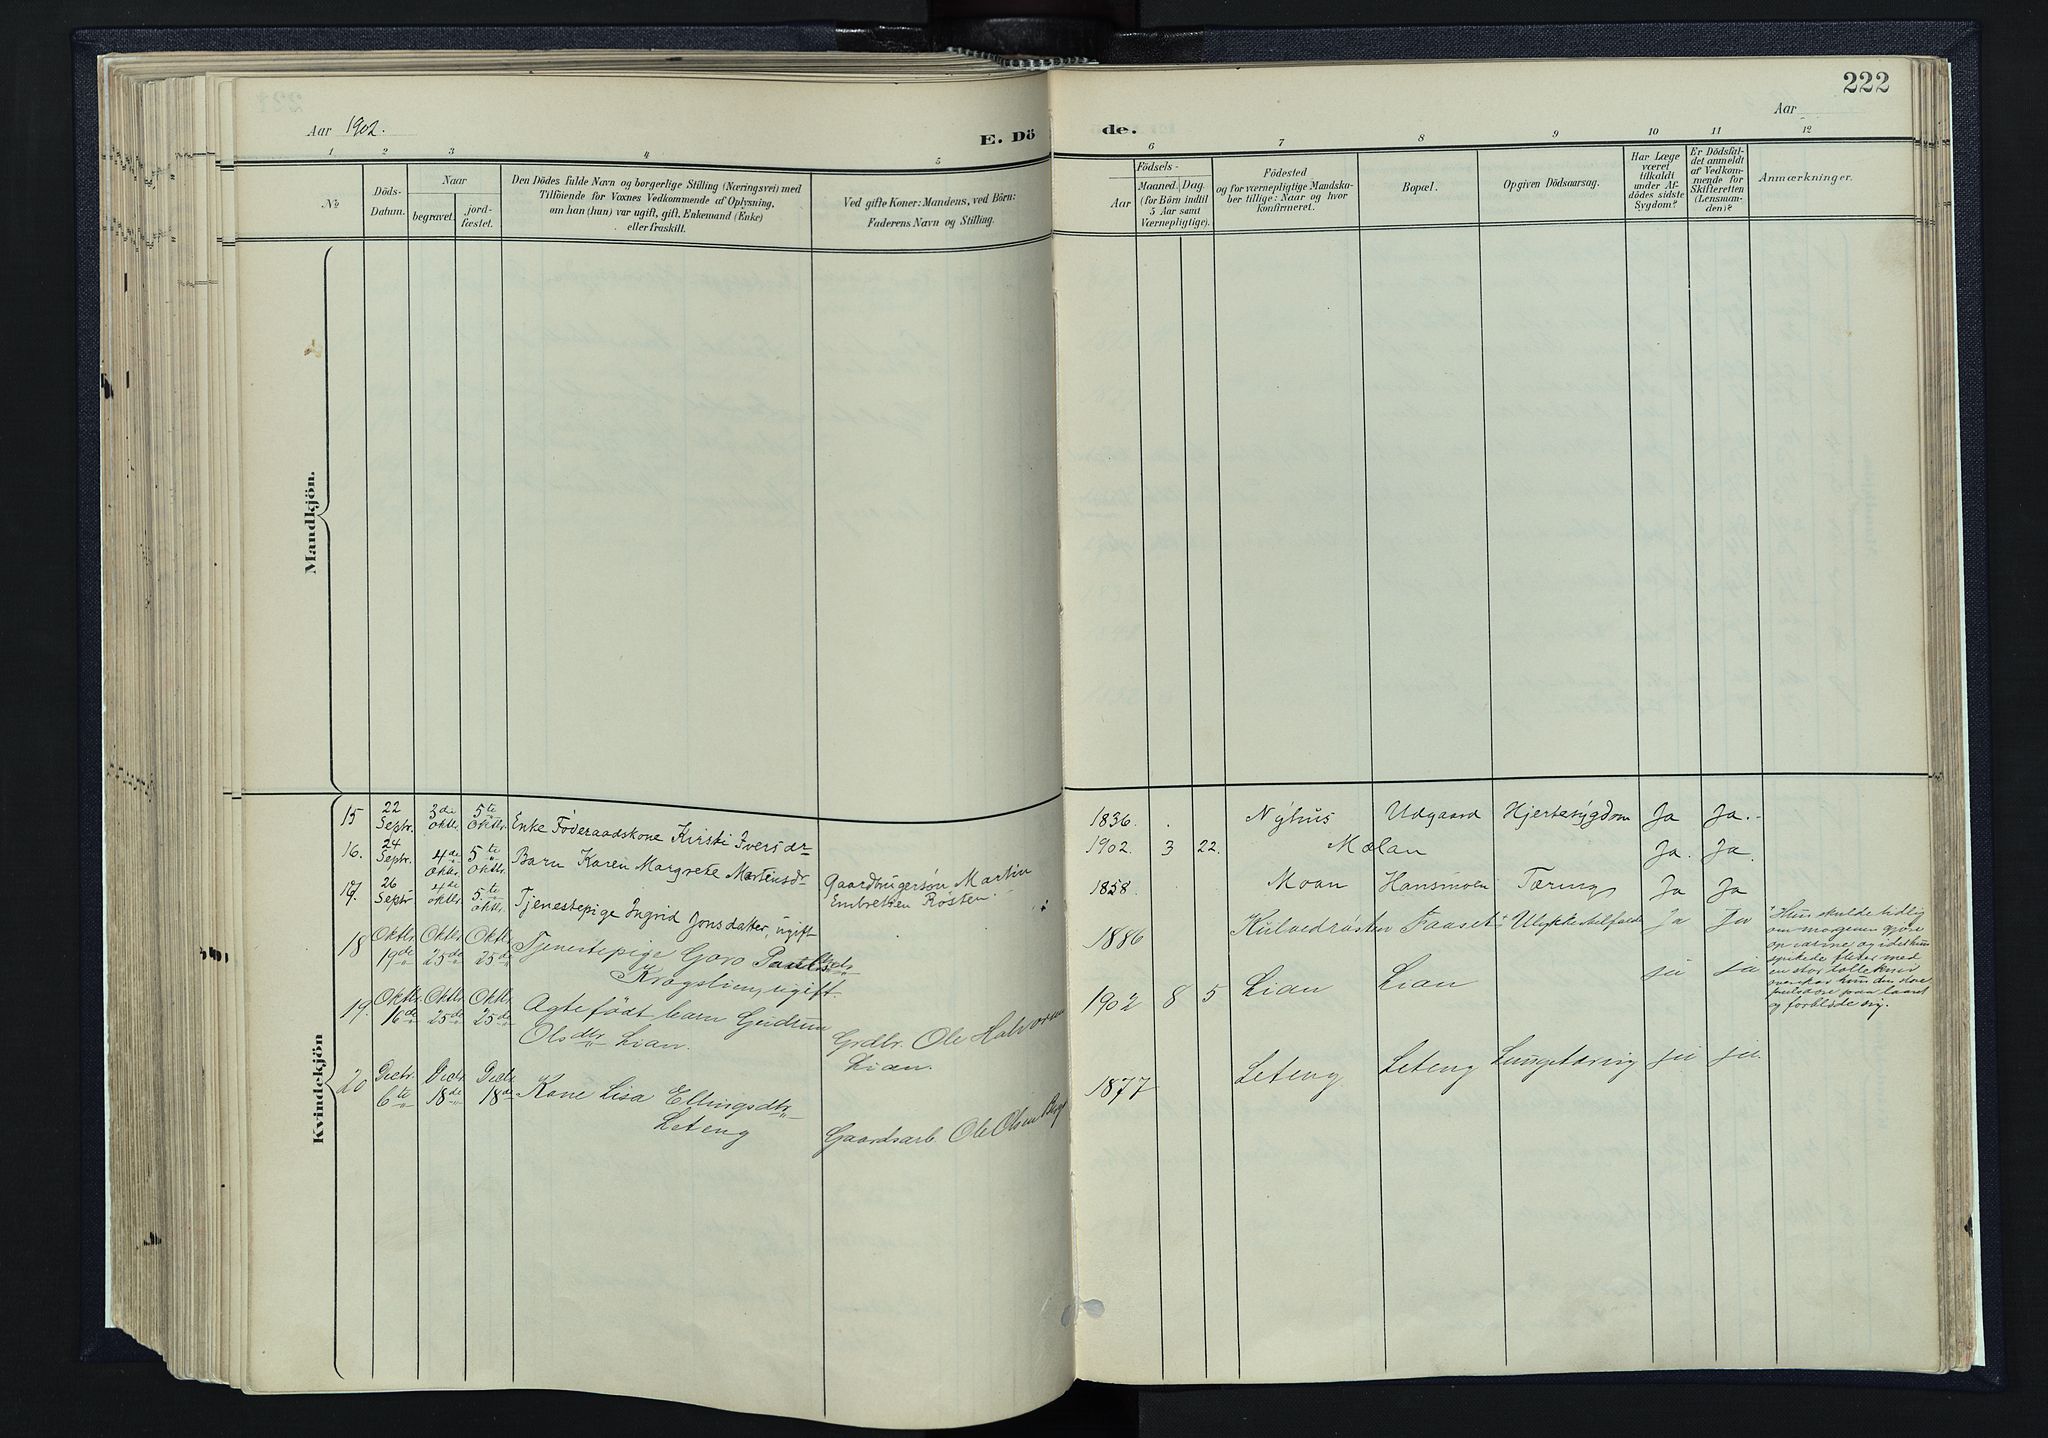 222
Aar 1902.
E. Dö
de.
Aar
1 2 3 4 5 6 7 8 9 10 11 12
No
Döds-
Datum.
Naar
begravet.
jord-
fæstet.
Den Dödes fulde Navn og borgerlige Stilling (Næringsvei) med
Tilföiende for Voxnes Vedkommende af Oplysning,
om han (hun) var ugift, gift, Enkemand (Enke)
eller fraskilt.
Ved gifte Koner: Mandens, ved Börn:
Faderens Navn og Stilling.
Födsels-
Aar
Maaned. Dag.
(for Börn indtil
5 Aar samt
Værnepligtige).
Födested
og for værnepligtige Mandska-
ber tillige: Naar og hvor
konfirmeret.
Bopæl.
Opgiven Dödsaarsag.
Har Læge
været
tilkaldt
under Af-
dödes sidste
Sygdom?
Er Dödsfal-
det anmeldt
af Vedkom-
mende for
Skifteretten
(Lensman-
den)?
Anmærkninger.
Mandkjön.
Kvindekjön
15 22 Septr. 3de Oktbr. 5te Oktbr. Enke Föderaadskone Kirsti Iversdr 1836. Nyhus Udgaard Hjertesygdom Ja Ja.
16. 24 Septr. 4de Oktbr. 5te Oktbr. Barn Karen Margrete Martensdr Gaardbrugersön Martin
Embretsen Rosten 1902. 3 22. Mælan Ja. Ja.
17. 26 Septr 4de Oktbr 5te Oktbr. Tjenestepige Ingrid Jonsdatter, ugift 1858 Moan Hansmoen Tæring Ja Ja
18 Oktbr. 19de Oktbr. 25de Oktbr. 25de Tjenestepige Goro Paulsdtr
Krogslien, ugift. 1886 Faaset Ja Ja
Hun skulde tidlig
om morgenen gjöre
op varme, og idet hun
spikede fliser med
en stor tollekniv
overskar hun den store
pulsåre paa laaret
og forblödde sig.
19. Oktbr. 16de Oktbr. 25de Oktbr. 25de Ægtefödt barn Gudrun
Olsdtr Lian. Grdbr. Ole Halvorsen
Lian. 1902 8 5 Lian Lian ja ja
20 Decbr. 6te Decbr. 18de Decbr. 18de Kone Lisa Ellingsdtr
Leteng Gaardsarb. Ole Olsen Berg 1877 Leteng Leteng Lungetæring ja ja.